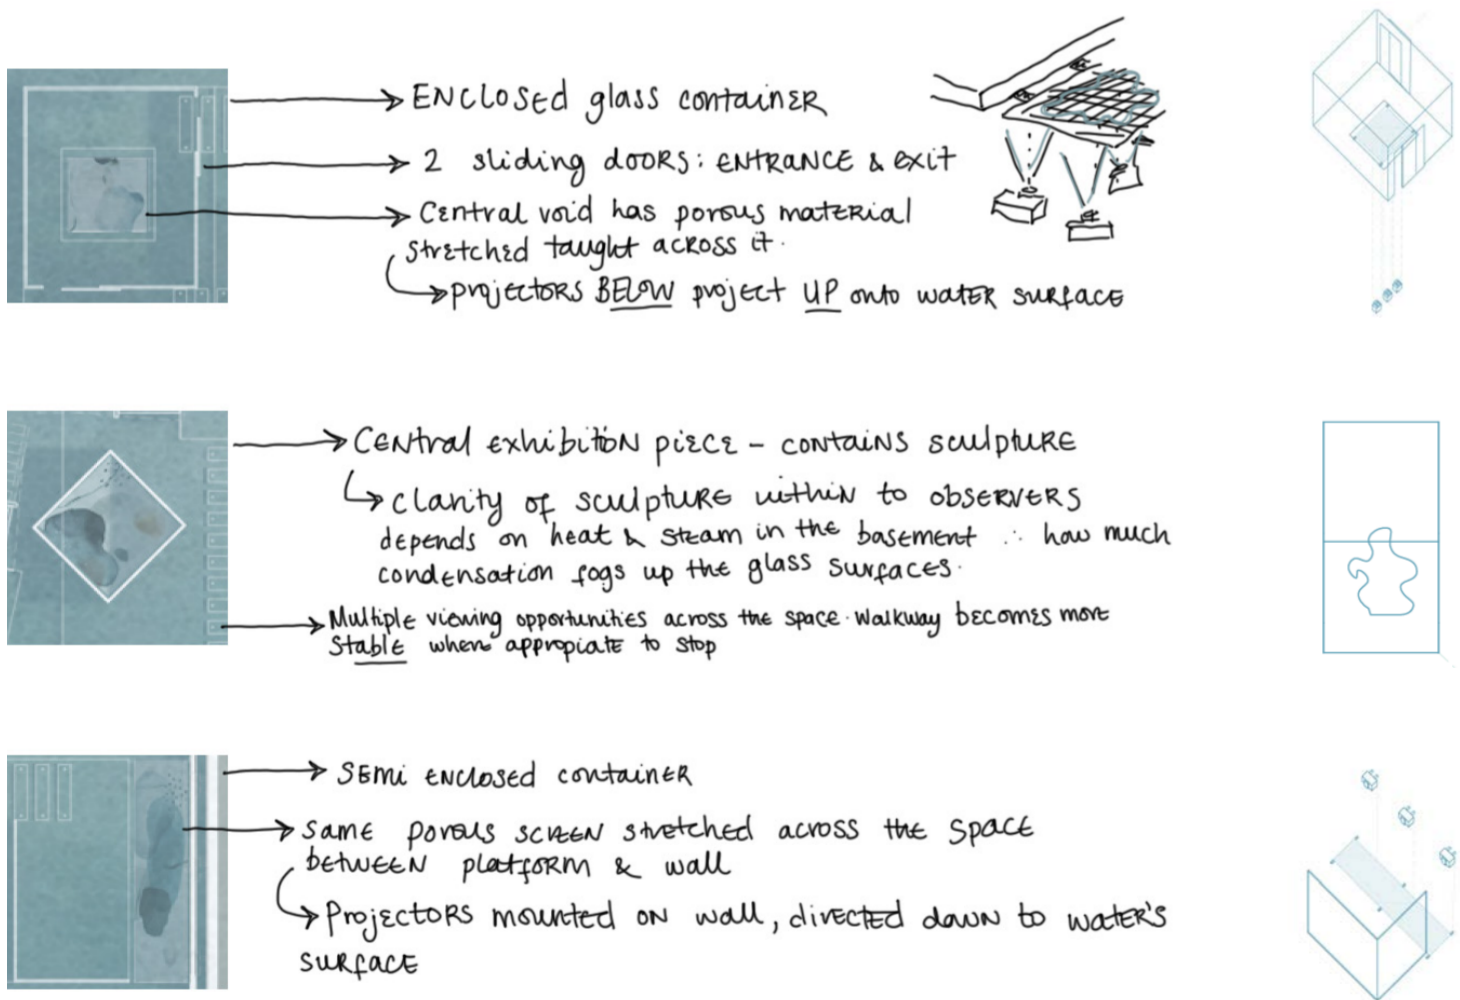 ENCLOSED glass container
2 sliding doors: ENTRANCE & exit
Central void has porous material
stretched taught across it.
projectors BELOW project UP onto water surface
Central exhibition piece - contains sculpture
clarity of sculpture within to observers
depends on heat & steam in the basement ∴ how much
condensation fogs up the glass surfaces.
Multiple viewing opportunities across the space. Walkway becomes more
stable where appropiate to stop
Semi enclosed container
same porous screen stretched across the space
between platform & wall
Projectors mounted on wall, directed down to water's
surface